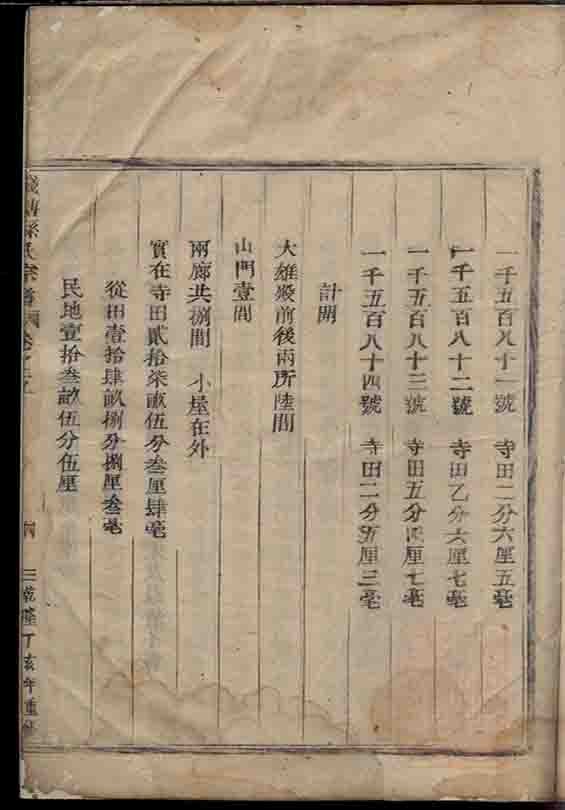 一千五百八十一號 寺田二分六厘五毫
一千五百八十二號 寺田乙分六厘七毫
一千五百八十三號 寺田五分四厘七毫
一千五百八十四號 寺田二分五厘三毫
計開
大雄殿前後兩所陸間
山門壹間
兩廊共捌間 小屋在外
實在寺田貳拾柒畝伍分叁厘肆毫
從田壹拾肆畝捌分捌厘叁毫
民地壹拾叁畝伍分伍厘
孫氏宗譜 卷之 四 三 乾隆丁亥年重